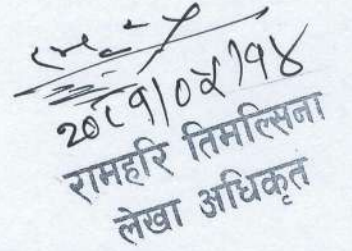 २०८१।०४।१४
रामहरि तिमल्सिना
लेखा अधिकृत